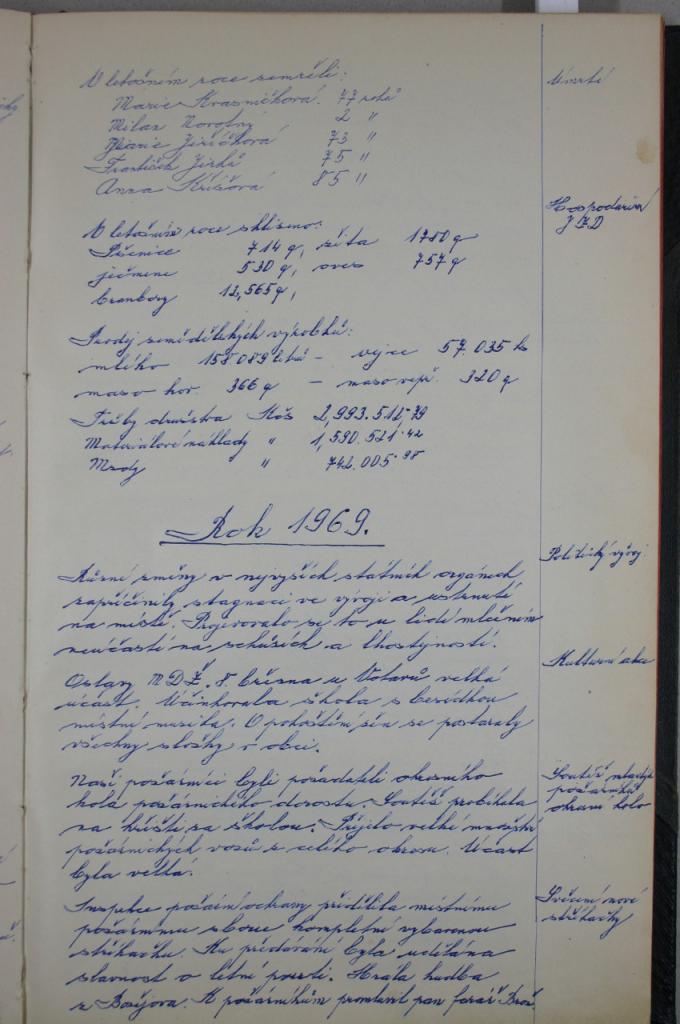 V letošním roce zemřeli:
Úmrtí
Marie Krasničková 77 roků
Milan Novotný 2 "
Marie Jiříčková 73 "
František Jirků 75 "
Anna Křížová 85 "
Hospodaření
JZD
V letošním roce sklizeno:
Pšenice 714 q, žita 1780 q
ječmene 530 q, oves 757 q
brambory 12,565 q,
Prodej zemědělských výrobků:
mléko 158 089 litrů – vejce 57.035 ks
maso hov. 366 q – maso vepř. 320 q
Tržby družstva Kčs 2,993.512,79
Materiálové náklady " 1,590.521.42
Mzdy " 742.005.98
Rok 1969.
Politický vývoj.
Různé změny v nejvyšších státních orgánech
zapříčinily stagnaci ve vývoji a ustrnutí
na místě. Projevovalo se to u lidí mlčením
neúčastí na schůzích a lhostejností.
Kulturní akce
Oslavy MDŽ. 8. března u Votavů velká
účast. Účinkovala škola s besídkou
místní muzika. O pohoštění žen se postaraly
všechny složky v obci.
Soutěž mladých
požárníků
okrsní kolo
Naši požárníci byli pořadateli okresního
kola požárnického dorostu. Soutěž probíhala
na hřišti za školou. Přijelo velké množství
požárnických vozů z celého okresu. Účast
byla velká.
Svěcení nové
stříkačky
Inspekce požární ochrany přidělila místnímu
požárnímu sboru kompletní vybavenou
stříkačku. Ku předávání byla udělána
slavnost o letní pouti. Hrála hudba
z Božejova. K požárníkům promluvil pan farář